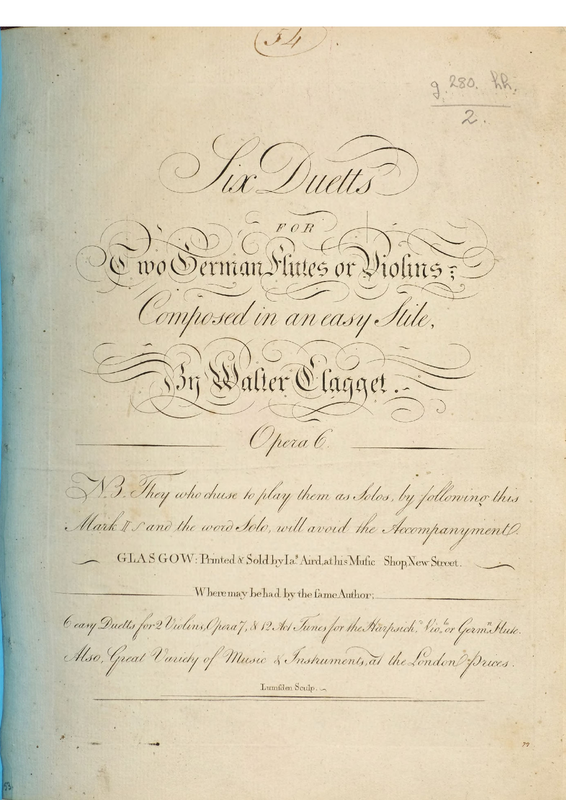 54
g. 280. hh.
2.
Six Duetts
FOR
Two German Flutes or Violins;
Composed in an easy Stile,
By Walter Clagget.
Opera 6.
NB. They who chuse to play them as Solos, by following this
Mark and the word Solo, will avoid the Accompanyment.
GLASGOW: Printed & Sold by Ja.s Aird, at his Music Shop, New Street.
Where may be had by the same Author;
6 easy Duetts for 2 Violins, Opera 7, & 12 Act Tunes for the Harpsich.d Vio.n or Germ.n Flute.
Also, Great Variety of Music & Instruments, at the London Prices.
Lumsden Sculp.